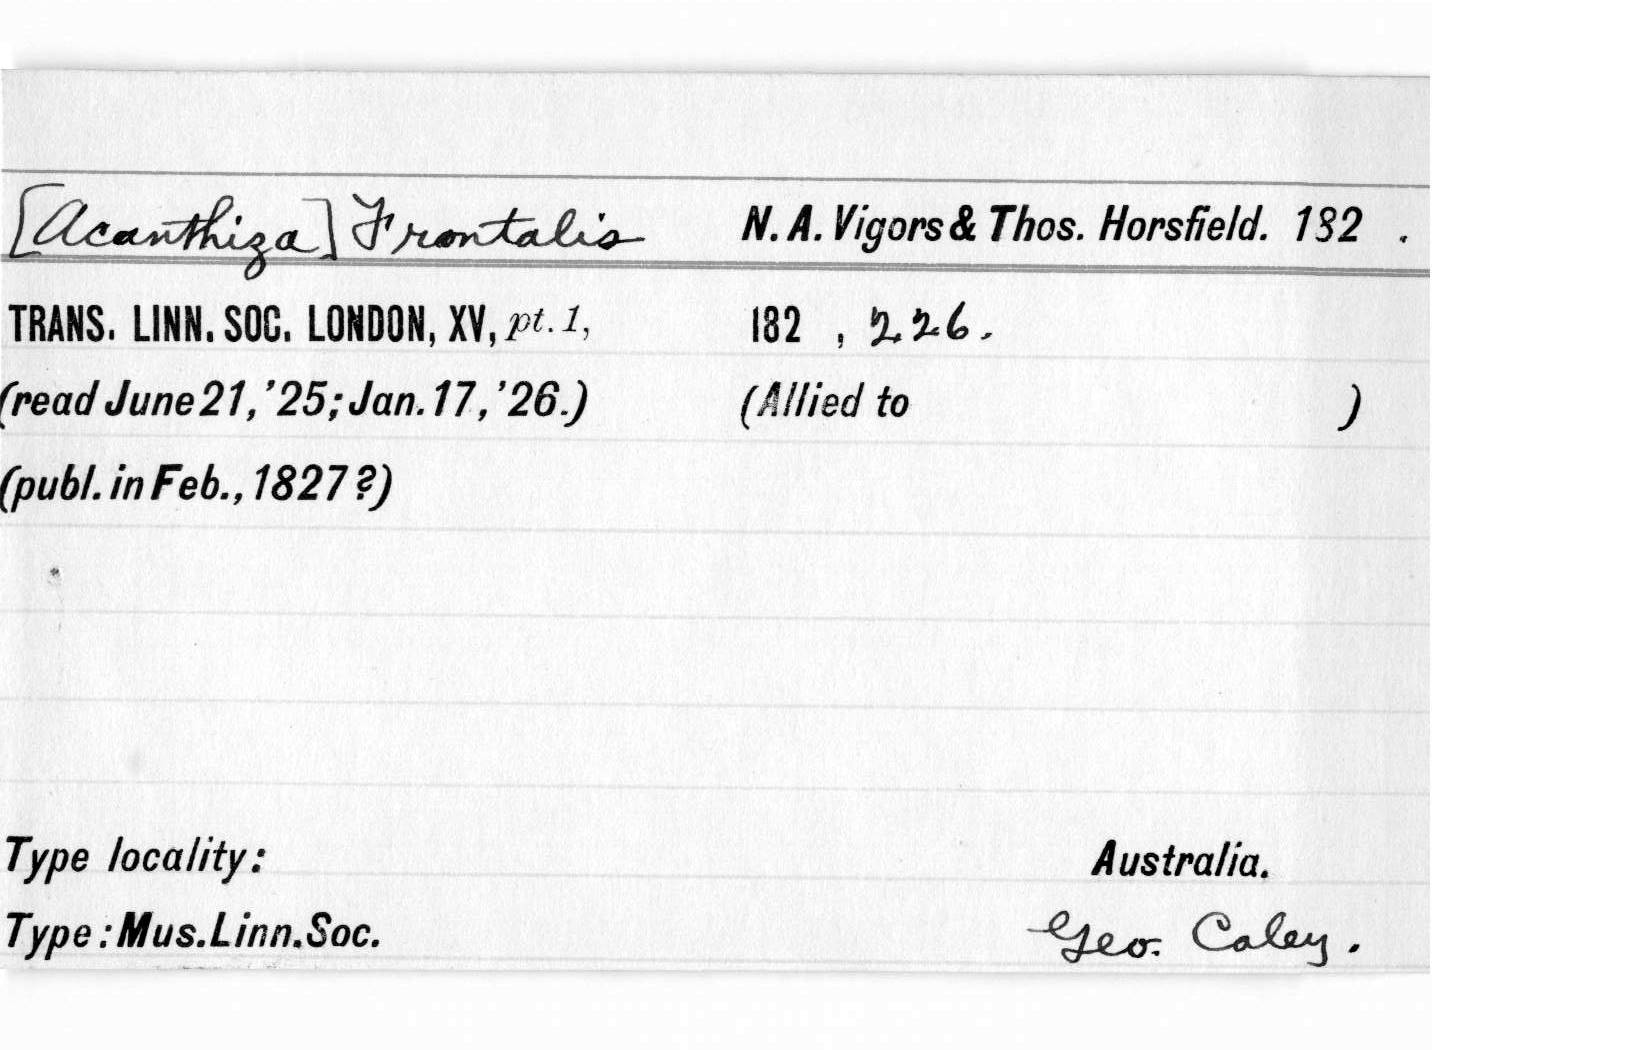 [Acanthiza] Frontalis N. A. Vigors & Thos. Horsfield. 182 .
TRANS. LINN. SOC. LONDON, XV, pt. 1, 182 , 226.
(read June 21, '25; Jan. 17, '26.) (Allied to )
(publ. in Feb., 1827?)
Type locality: Australia.
Type: Mus. Linn. Soc. Geo. Caley.